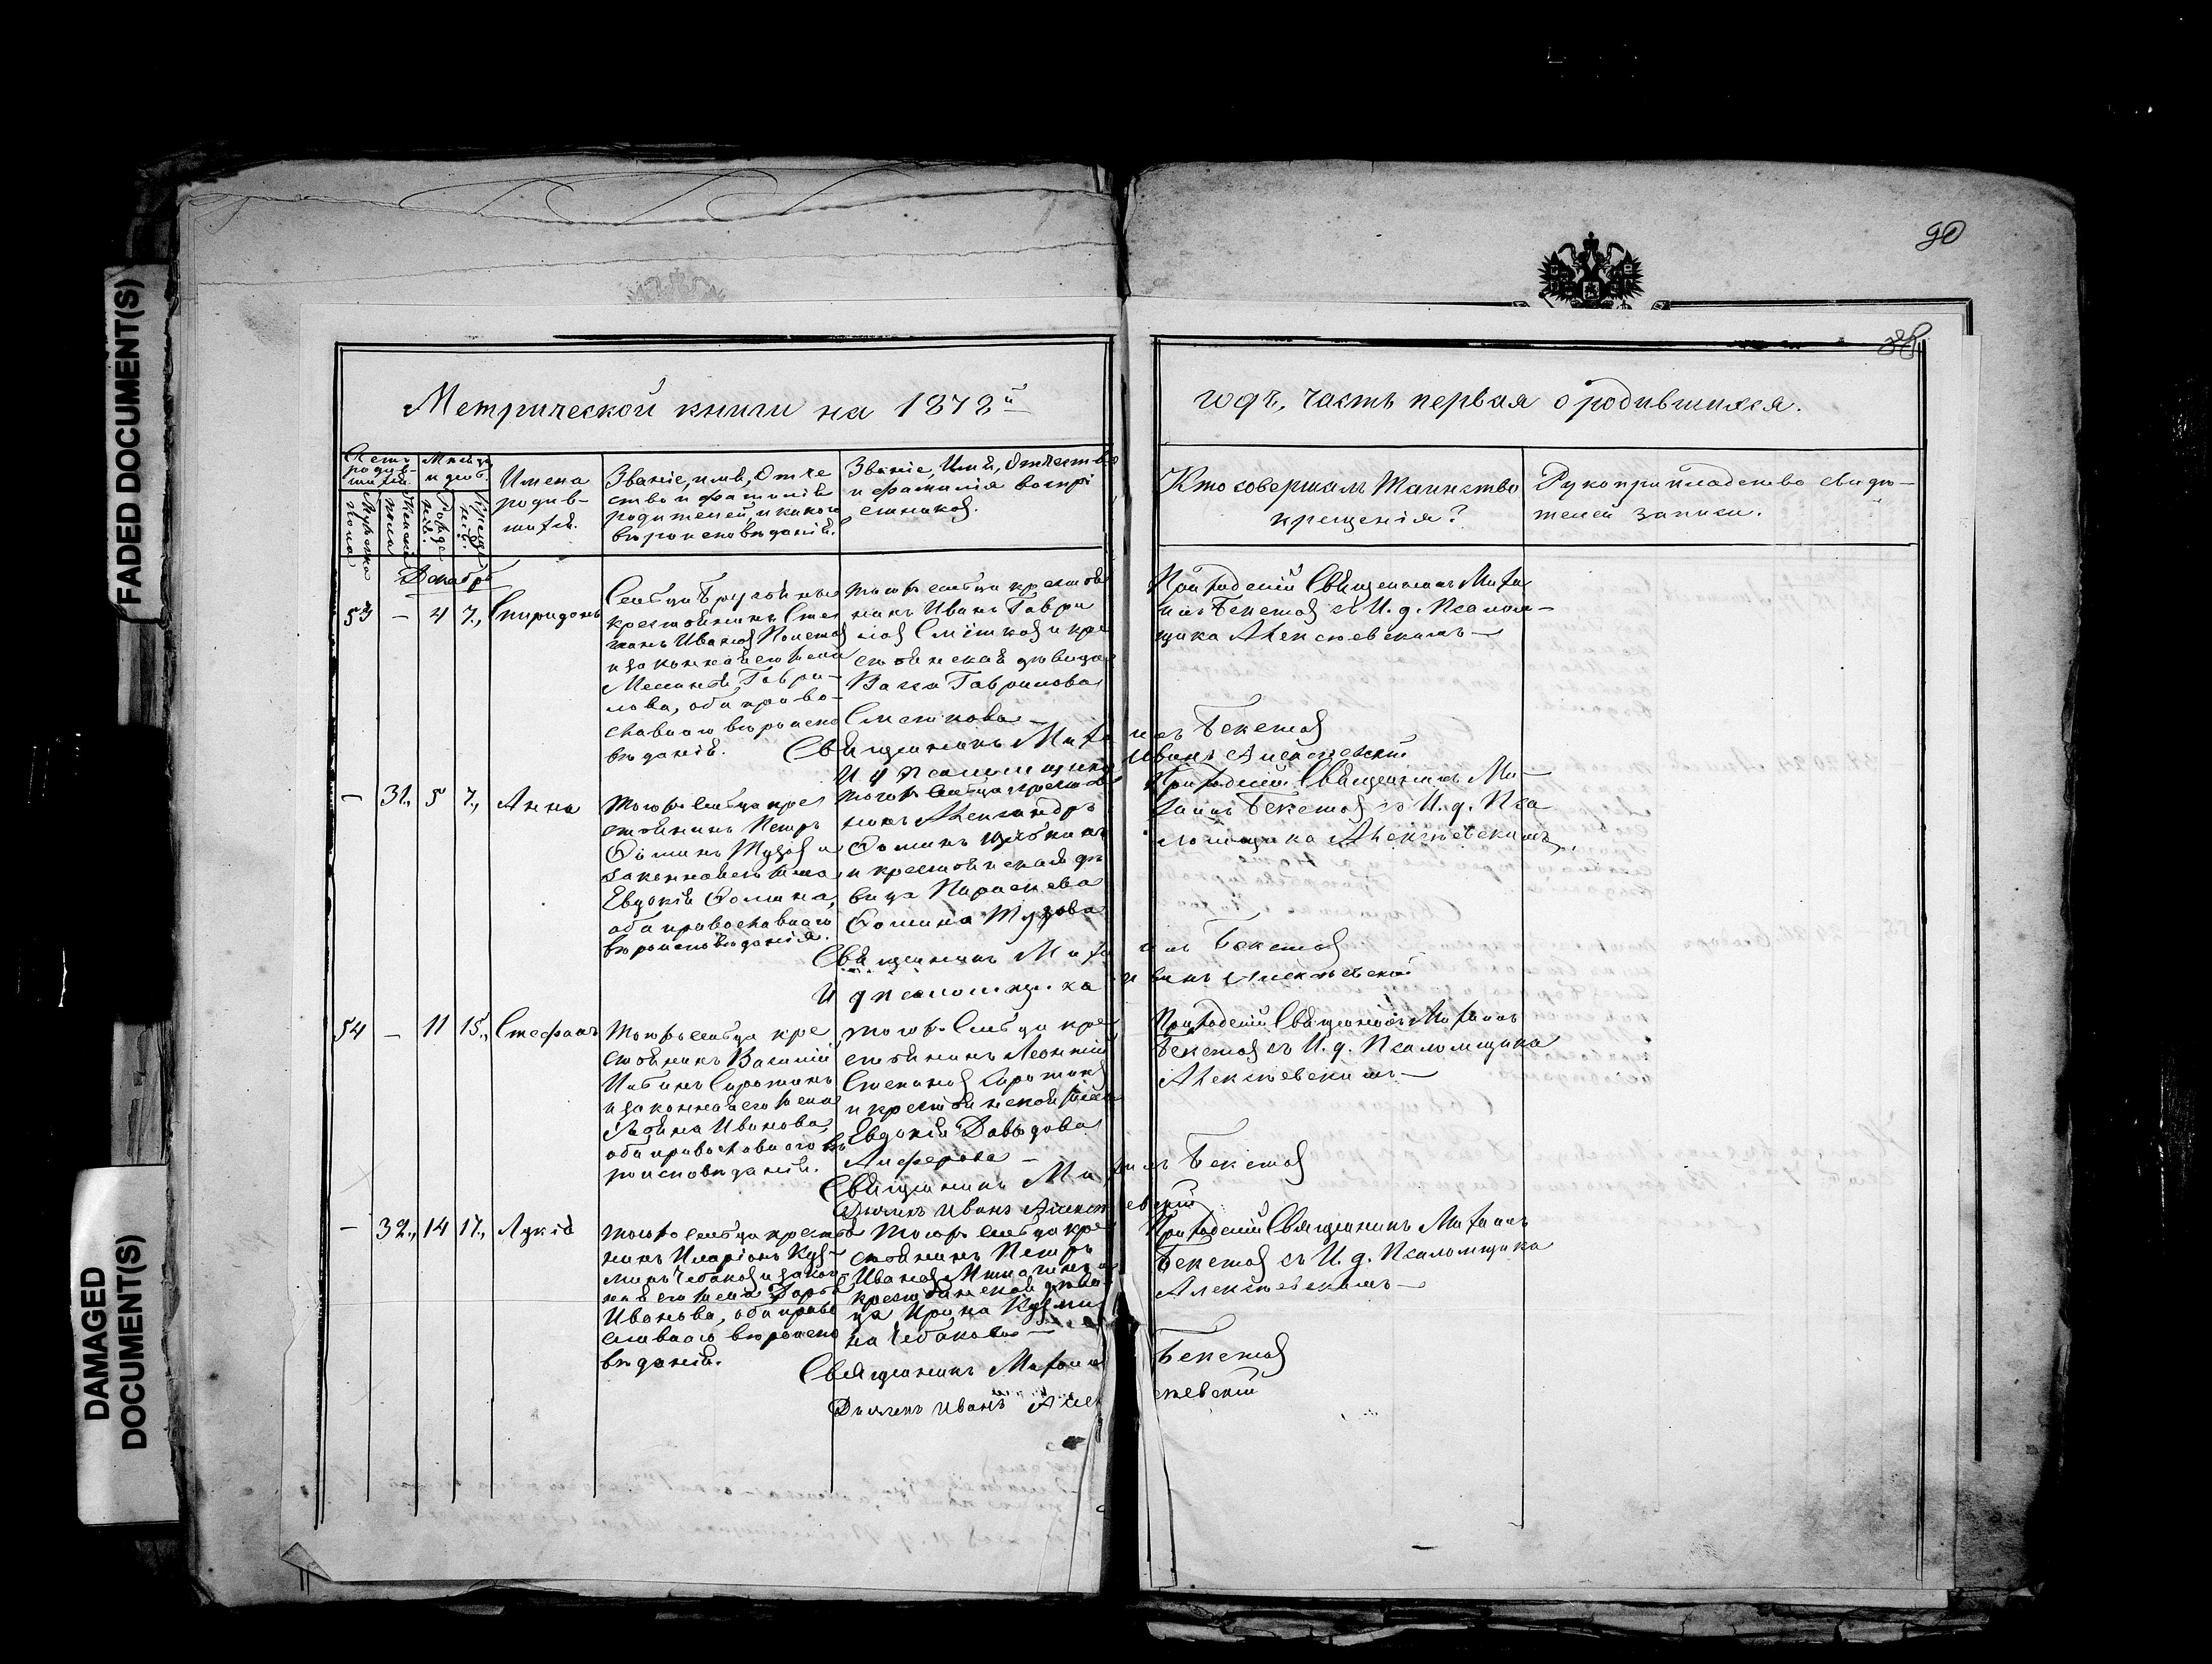 FADED DOCUMENT(S)
DAMAGED
DOCUMENT(S)
90
Метрической книги на 1878й
годъ, часть первая о родившихся.
Счетъ
родив-
шихся.
Мѣсяцъ
и день.
Мужеска
пола
Женска
пола
Рожде
нія.
Креще
нія.
Имена
родив-
шихся.
Званіе, имя, Отче
ство и фамилія
родителей, и какого
вѣроисповѣданія.
Званіе, Имя, Отчество
и фамилія воспрі
емниковъ.
Кто совершалъ Таинство
крещенія?
Рукоприкладство свидѣ-
телей записи.
Декабрь
53 - 4 7., Спиридонъ
Сельца
крестьянинъ Сте
панъ Ивановъ
и законная его жена
Гаври-
лова, оба право-
славнаго вѣроиспо
вѣданія.
того же сельца крестья
нинъ Иванъ Гаври
ловъ и кре
стьянская дѣвица
Васса Гаврилова
Сметкова -
Приходскій Священникъ Миха
илъ Бекетовъ съ И. д. Псалом-
щика Алексѣевскимъ -
Священникъ Михаилъ Бекетовъ
И д псаломщика Иванъ Алексѣевскій
- 31., 5 7., Анна
Того же сельца кре
стьянинъ Петръ
Ѳоминъ Тузовъ и
законная его жена
Евдокія Ѳомина,
оба православнаго
вѣроисповѣданія.
того же сельца крестья
нинъ Александръ
Ѳоминъ
и крестьянская дѣ
вица Параскева
Ѳомина Тузова
Приходскій Священникъ Ми-
хаилъ Бекетовъ съ И. д. Пса
ломщика Алексѣевскимъ.
Священникъ Михаилъ Бекетовъ
И д псаломщика Иванъ Алексѣевскій
54 - 11 15., Стефанъ
Того же сельца кре
стьянинъ Василій
Сиротинъ
и законная его жена
Иванова,
оба православнаго вѣ
роисповѣданія.
того же Сельца кре
стьянинъ Леонтій
Степановъ
и крестьянская жена
Евдокія Давыдова
Алферова -
Приходскій Священникъ Михаилъ
Бекетовъ съ И. д. Псаломщика
Алексѣевскимъ -
Священникъ Михаилъ Бекетовъ
Дьячекъ Иванъ Алексѣевскій
- 32., 14 17., Лукія
Того же сельца крестья
нинъ Иларіонъ Кузь-
минъ Чебаковъ и закон-
ная его жена Дарья
Иванова, оба право
славнаго вѣроиспо
вѣданія.
Того же Сельца кре
стьянинъ Петръ
Ивановъ и
крестьянская дѣви
ца Ирина Кузми
на Чебакова -
Приходскій Священникъ Михаилъ
Бекетовъ съ И. д. Псаломщика
Алексѣевскимъ -
Священникъ Михаилъ Бекетовъ
Дьячекъ Иванъ Алексѣевскій